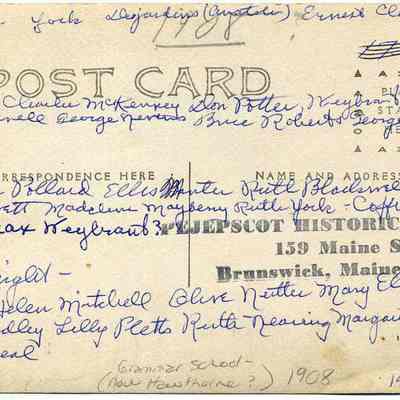 York Desjardins (Anatolin) Ernest Cl
POST CARD
Charles McKenney Don Potter, Weybran
nell George Nevens Brice Roberts George
CORRESPONDENCE HERE
NAME AND ADDRESS
Pollard Ellis Manter Ruth Blackwel
ett Madeline Mayberry Ruth York - Coff
ax Weybrant?
PEJEPSCOT HISTORIC
159 Maine S
Brunswick, Maine
ight -
Helen Mitchell Olive Neitter Mary El
dley Lilly Pletts Ruth Nearing Margar
eal
Grammar School -
(now Hawthorne?) 1908